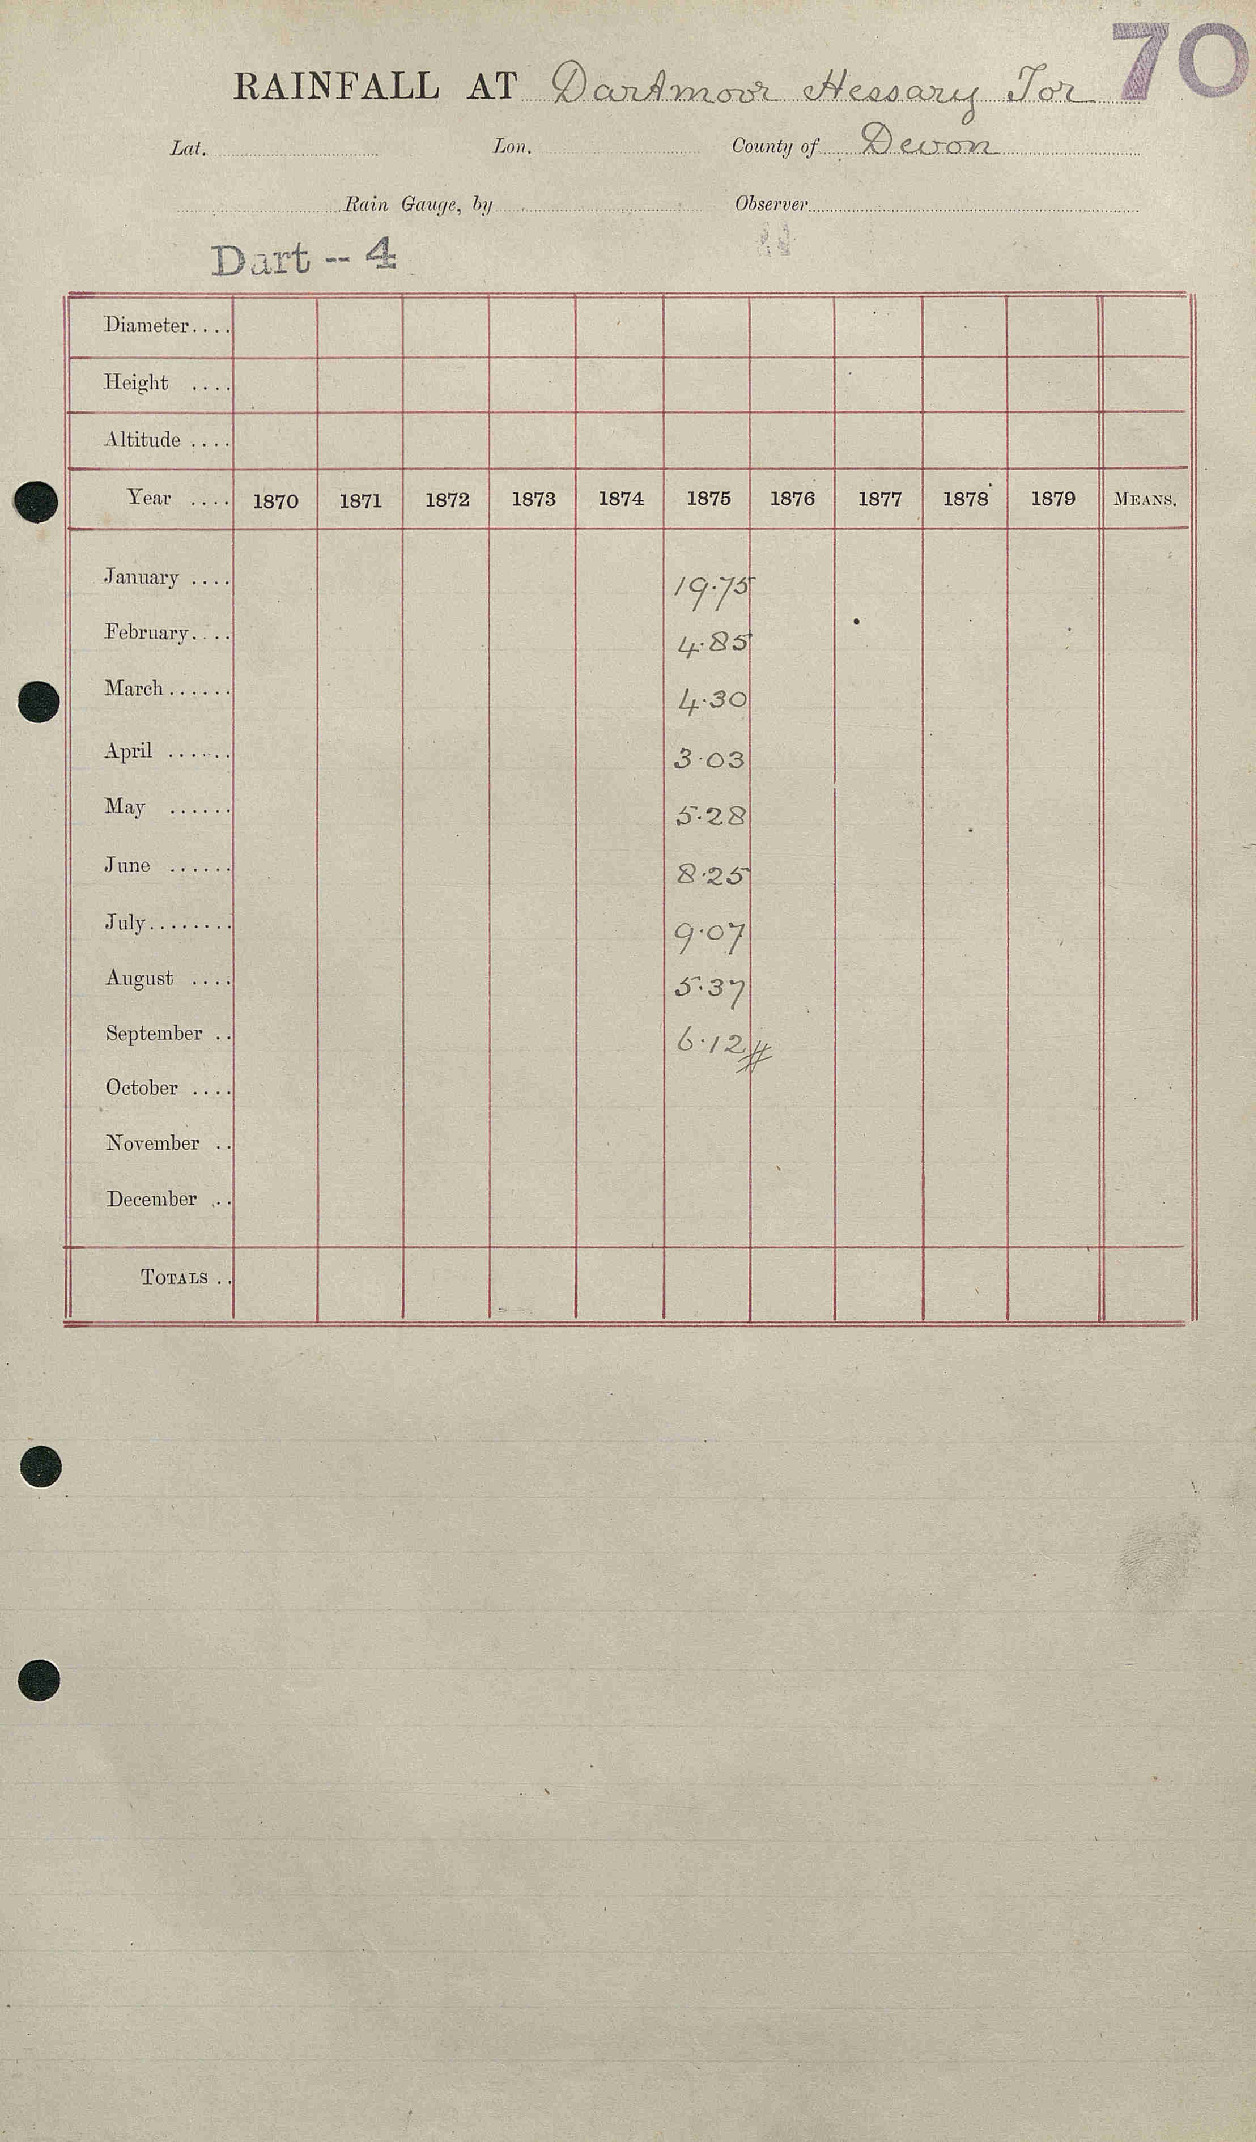 70
RAINFALL AT Dartmoor Hessary Tor
Lat. Lon. County of Devon
Rain Gauge, by Observer
Dart -- 4
Diameter....
Height ....
Altitude ....
Year .... 1870 1871 1872 1873 1874 1875 1876 1877 1878 1879 MEANS.
January .... 19.75
February.... 4.85
March...... 4.30
April ...... 3.03
May ...... 5.28
June ...... 8.25
July........ 9.07
August .... 5.37
September .. 6.12 #
October ....
November ..
December ..
TOTALS ..